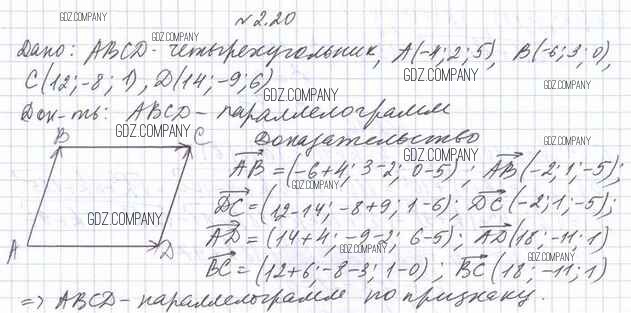 №2.20
Дано: ABCD - четырехугольник, A(-4; 2; 5), B(-6; 3; 0),
C(12; -8; 1), D(14; -9; 6)
Док-ть: ABCD - параллелограмм
Доказательство
B C
A D
AB = (-6+4; 3-2; 0-5); AB(-2; 1; -5);
DC = (12-14; -8+9; 1-6); DC(-2; 1; -5);
AD = (14+4; -9-2; 6-5); AD(18; -11; 1)
BC = (12+6; -8-3; 1-0); BC(18; -11; 1)
=> ABCD - параллелограмм по признаку.
GDZ.COMPANY
GDZ.COMPANY
GDZ.COMPANY
GDZ.COMPANY
GDZ.COMPANY
GDZ.COMPANY
GDZ.COMPANY
GDZ.COMPANY
GDZ.COMPANY
GDZ.COMPANY
GDZ.COMPANY
GDZ.COMPANY
GDZ.COMPANY